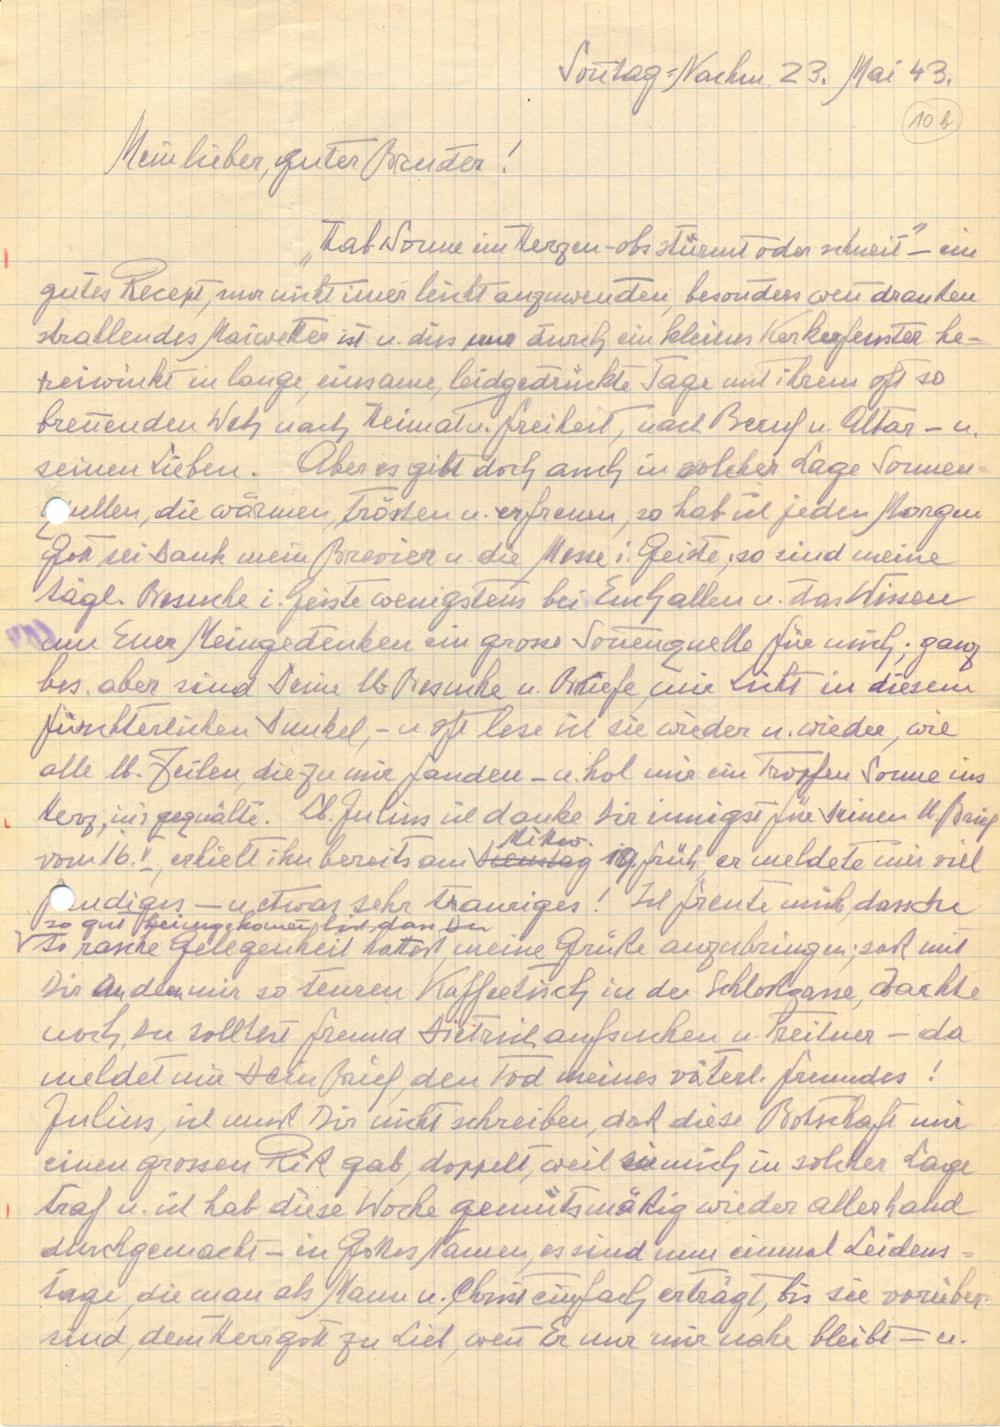 Sontag-Nachm. 23. Mai 43.
10 b
Mein lieber, guter Bruder!
„Hab Sonne im Herzen – obs stürmt oder schneit" – ein
gutes Recept, nur nicht imer leicht anzuwenden, besonders wen draußen
strahlendes Maiwetter ist u. dies nur durch ein kleines Kerkerfenster he-
reiwinkt in lange, einsame, leidgedrückte Tage mit ihrem oft so
brenenden Weh nach Heimat u. Freiheit, nach Beruf u. Altar – u.
seinen Lieben. Aber es gibt doch auch in solcher Lage Sonnen-
quellen, die wärmen, trösten u. erfreuen, so hab ich jeden Morgen
Gott sei Dank mein Brevier u. die Messe i. Geiste, so sind meine
tägl. Besuche i. Geiste wenigstens bei Euch allen u. das Wissen
um Euer Meingedenken ein grosse Sonenquelle für mich; ganz
bes. aber sind Deine lb. Besuche u. Briefe, wie Licht in diesem
fürchterlichen Dunkel, – u. oft lese ich sie wieder u. wieder, wie
alle lb. Zeilen, die zu mir fanden – u. hol mir ein Tropfen Sonne ins
Herz, in's gequälte. Lb. Julius ich danke Dir innigst für Deinen lb. Brief
Mittw.
vom 16. V., erhielt ihn bereits am Dienstag 19. früh, er meldete mir viel
freudiges – u. etwas sehr trauriges! Ich freute mich, dass Du
so gut heimgekomen bist, dass Du
so rasche Gelegenheit hattest, meine Grüße anzubringen; saß mit
Dir an dem mir so teuren Kaffeetisch in der Schloßgasse, dachte
noch, Du solltest Freund Dietrich aufsuchen u. Reitner – da
meldet mir Dein Brief, den Tod meines väterl. Freundes!
Julius, ich muß Dir nicht schreiben, daß diese Botschaft mir
einen grossen Riß gab, doppelt, weil sie mich in solcher Lage
traf u. ich hab diese Woche gemütsmäßig wieder allerhand
durchgemacht – in Gottes Namen, es sind nun einmal Leidens-
tage, die man als Mann u. Christ einfach erträgt, bis sie vorüber-
sind, dem Herrgott zu Lieb, wen Er nur mir nahe bleibt – u.